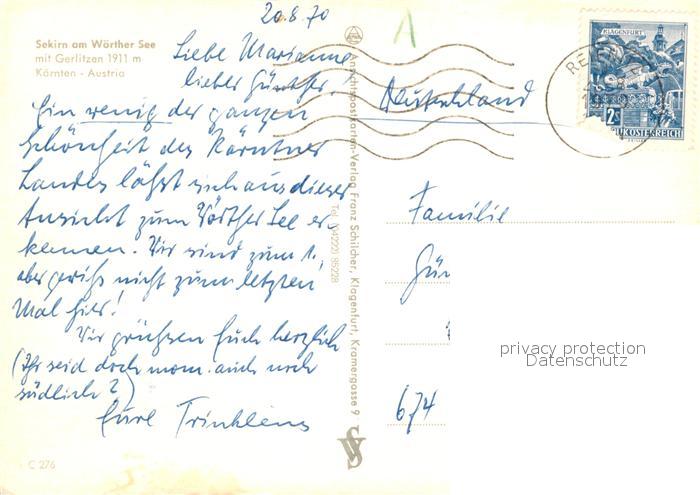 20.8.70
Sekirn am Wörther See
mit Gerlitzen 1911 m
Kärnten - Austria
Liebe Marianne,
lieber Günther,
Ein wenig der ganzen
Schönheit des Kärntner
Landes läßt sich aus dieser
Ansicht zum Wörther See er-
kennen. Wir sind zum 1.,
aber gewiß nicht zum letzten
Mal hier!
Wir grüßen Euch herzlich
(Ihr seid doch mom. auch noch
südlich?)
Eure Trinkleins
C 276
Ansichtspostkarten-Verlag Franz Schilcher, Klagenfurt, Kramergasse 9
Tel. (04222) 85228
1
KLAGENFURT
2S
REPUBLIK ÖSTERREICH
Deutschland
Familie
Gün
674
privacy protection
Datenschutz